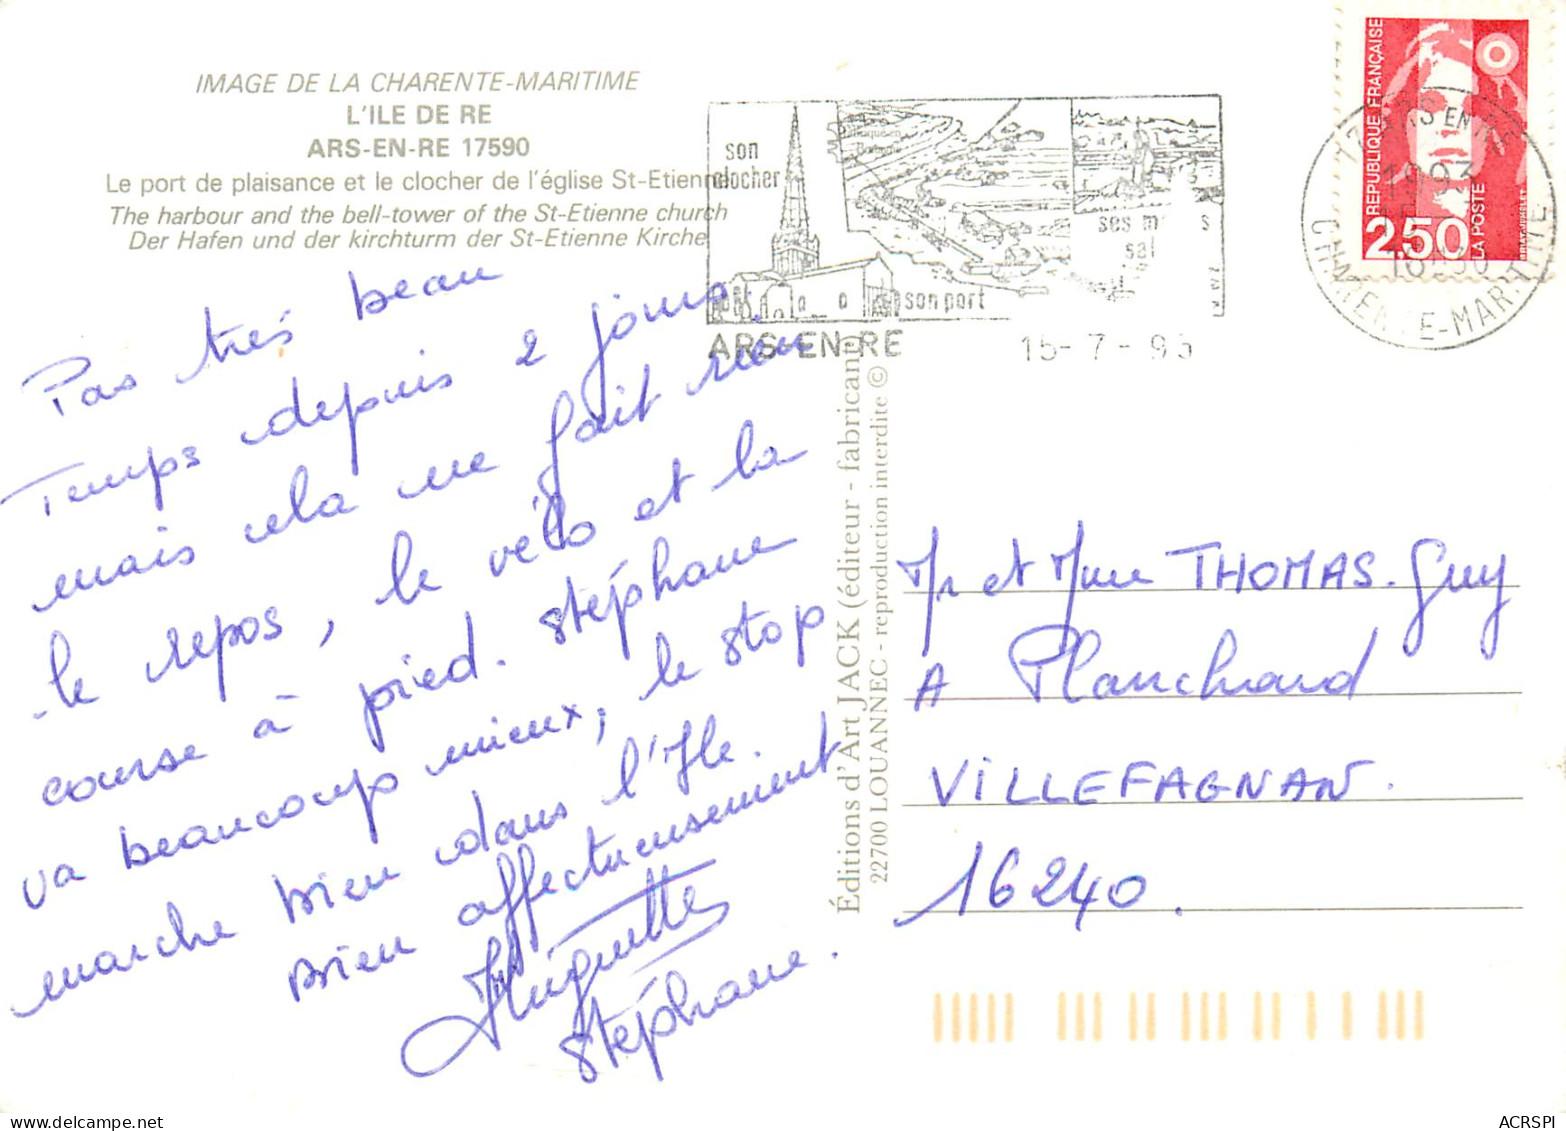 IMAGE DE LA CHARENTE-MARITIME
L'ILE DE RE
ARS-EN-RE 17590
Le port de plaisance et le clocher de l'église St-Etienne
The harbour and the bell-tower of the St-Etienne church
Der Hafen und der kirchturm der St-Etienne Kirche
son
clocher
son port
ses m s
sal
ARS-EN-RE
15-7-93
REPUBLIQUE FRANÇAISE
2,50
LA POSTE
17 ARS EN RE
1993
CHARENTE-MARITIME
Pas très beau
Temps depuis 2 jours
mais cela ne fait rien
le repos, le vélo et la
course à pied. Stéphane
va beaucoup mieux, le stop
marche bien dans l'Ile.
Bien affectueusement
Huguette
Stéphane.
Éditions d'Art JACK (éditeur - fabricant)
22700 LOUANNEC - reproduction interdite ©
Mr et Mme THOMAS. Guy
A Planchard
VILLEFAGNAN.
16240.
ACRSPI